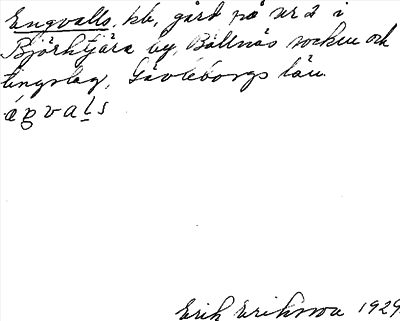 Engvalls, kb, gård på nr 2 i
Björktjära by, Bollnäs socken och
tingslag, Gävleborgs län.
Erik Eriksson 1929